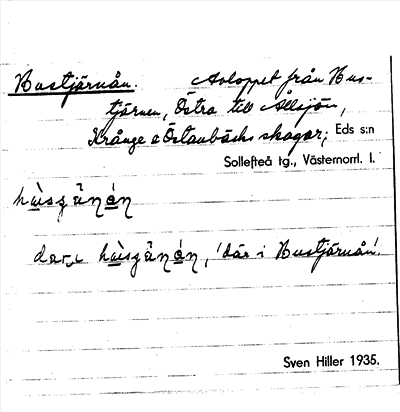 Bustjärnån. Avloppet från Bus-
tjärnen, Östra till Ållsjön,
Krånge o Östanbäcks skogar; Eds s:n
Sollefteå tg., Västernorrl. l.
'där i Bustjärnån'.
Sven Hiller 1935.